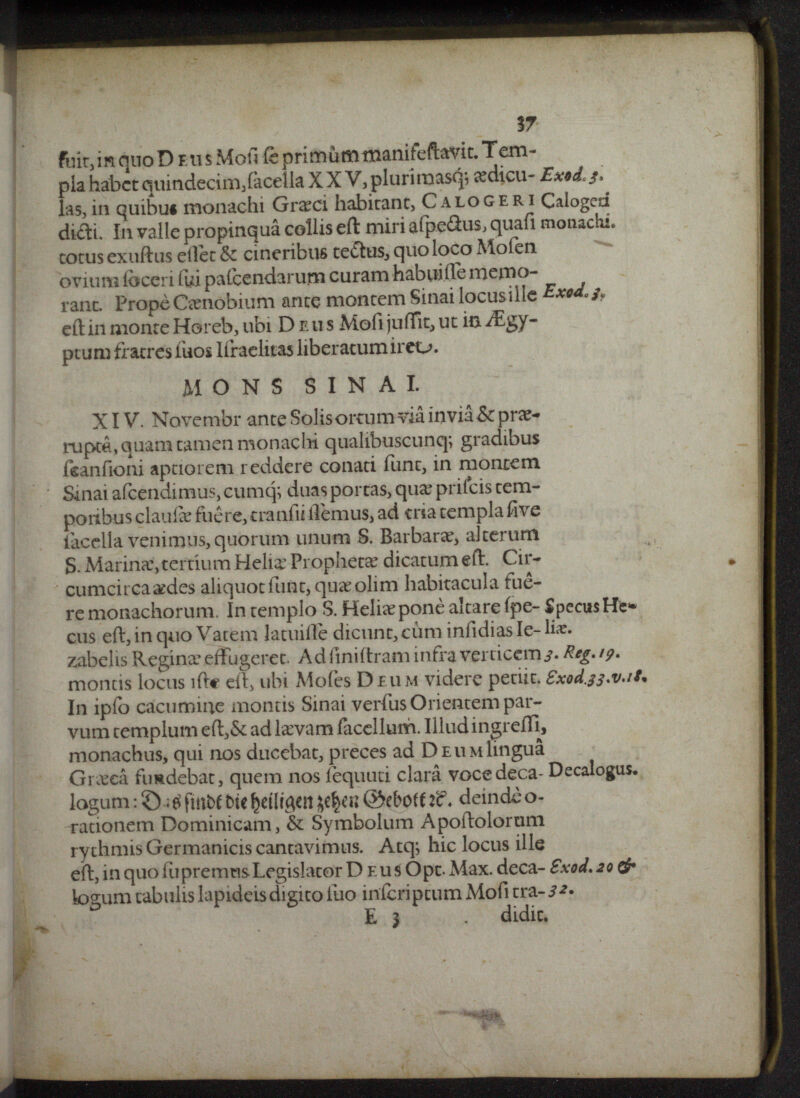 37
fuit, in quo DEUS Mosi se primùm manifestavit. Tem-
pla habet quindecim, sacella XXV, plurimasq; ædicu- Exod. 3.
las, in quibus monachi Græci habitant, CALOGERI Calogeri
dicti. In valle propinquâ collis est miri aspectus, quasi monachi.
totus exustus esset & cineribus tectus, quo loco Mosen
ovium soceri sui pascendarum curam habuisse memo-
rant. Propè Cænobium ante montem Sinai locus ille Exod. 3,
est in monte Horeb, ubi DEUS Mosi jussit, ut in Ægy-
ptum fratres suos Israelitas liberatum iret.
MONS SINAI.
XIV. Novembr ante Solis ortum viâ inviâ & præ-
ruptâ, quam tamen monachi qualibuscunq; gradibus
scansioni aptiorem reddere conati sunt, in montem
Sinai ascendimus, cumq; duas portas, quæ priscis tem-
poribus clausæ fuêre, transiissemus, ad tria templa sive
sacella venimus, quorum unum S. Barbaræ, alterum
S. Marinæ, tertium Heliæ Prophetæ dicatum est. Cir-
cumcirca ædes aliquot sunt, quæ olim habitacula fuê-
re monachorum. In templo S. Heliæ ponè altare spe- Specus He-
cus est, in quo Vatem latuisse dicunt, cùm insidias Ie- liæ.
zabelis Reginæ effugeret. Ad sinistram infra verticem 3. Reg. 19.
montis locus iste est, ubi Moses DEUM videre petiit. Exod. 33. v. 18.
In ipso cacumine montis Sinai versus Orientem par-
vum templum est, & ad lævam sacellum. Illud ingressi,
monachus, qui nos ducebat, preces ad DEUM linguâ
Græcâ fundebat, quem nos sequuti clarâ voce deca- Decalogus.
logum: Dis sindt die heiligen zehen Gebott ꝛc. deinde o-
rationem Dominicam, & Symbolum Apostolorum
rythmis Germanicis cantavimus. Atq; hic locus ille
est, in quo supremus Legislator DEUS Opt. Max. deca- Exod. 20 &
logum tabulis lapideis digito suo inscriptum Mosi tra- 32.
E 3 didit.